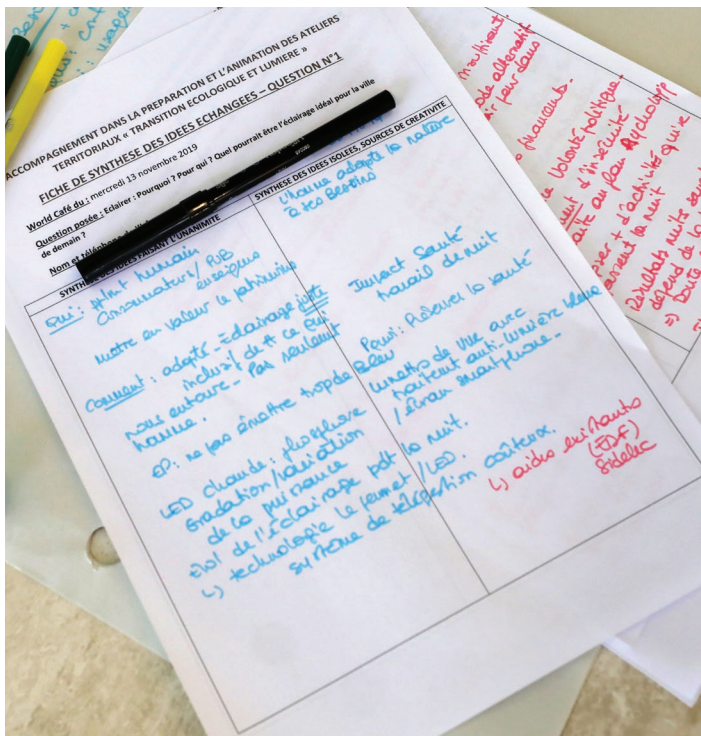 ACCOMPAGNEMENT DANS LA PREPARATION ET L'ANIMATION DES ATELIERS
TERRITORIAUX « TRANSITION ECOLOGIQUE ET LUMIERE »
FICHE DE SYNTHESE DES IDEES ECHANGEES – QUESTION N°1
World Café du : mercredi 13 novembre 2019
Question posée : Eclairer : Pourquoi ? Pour qui ? Quel pourrait être l'éclairage idéal pour la ville
de demain ?
Nom et téléphone
SYNTHESE DES IDEES FAISANT L'UNANIMITE
Qui : point humain
Consommateurs / PUB
enseignes
mettre en valeur le patrimoine
Comment : adapté - Éclairage juste
inclusif de tt ce qui
nous entoure - Pas seulement
homme.
EP : ne pas émettre trop de Bleu
LED chaude : phosphore
Gradation / variation
de la puissance
de l'éclairage pdt la nuit.
↳ technologie le permet / LED.
système de télégestion coûteux.
SYNTHESE DES IDEES ISOLEES, SOURCES DE CREATIVITE
L'homme adapte la nature
à ses Besoins
Impact Santé
travail de nuit
Pour : Préserver la santé
lunettes de vue avec
traitement anti-lumière bleue
/ écran smartphone -
↳ aides existantes
(EDF)
Sidelec
financements.
Volonté politique.
d'insécurité
au plan Psychologique
+ d'activités qui se
passent la nuit
Résultats nuits sans
dépend de la
⇒ Doute